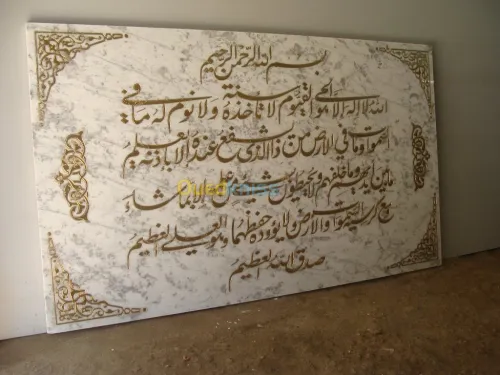 بسم الله الرحمن الرحيم
الله لا إله إلا هو الحي القيوم لا تأخذه سنة ولا نوم له ما في
السموات وما في الأرض من ذا الذي يشفع عنده إلا بإذنه يعلم
ما بين أيديهم وما خلفهم ولا يحيطون بشيء من علمه إلا بما شاء
وسع كرسيه السموات والأرض ولا يؤوده حفظهما وهو العلي العظيم
صدق الله العظيم